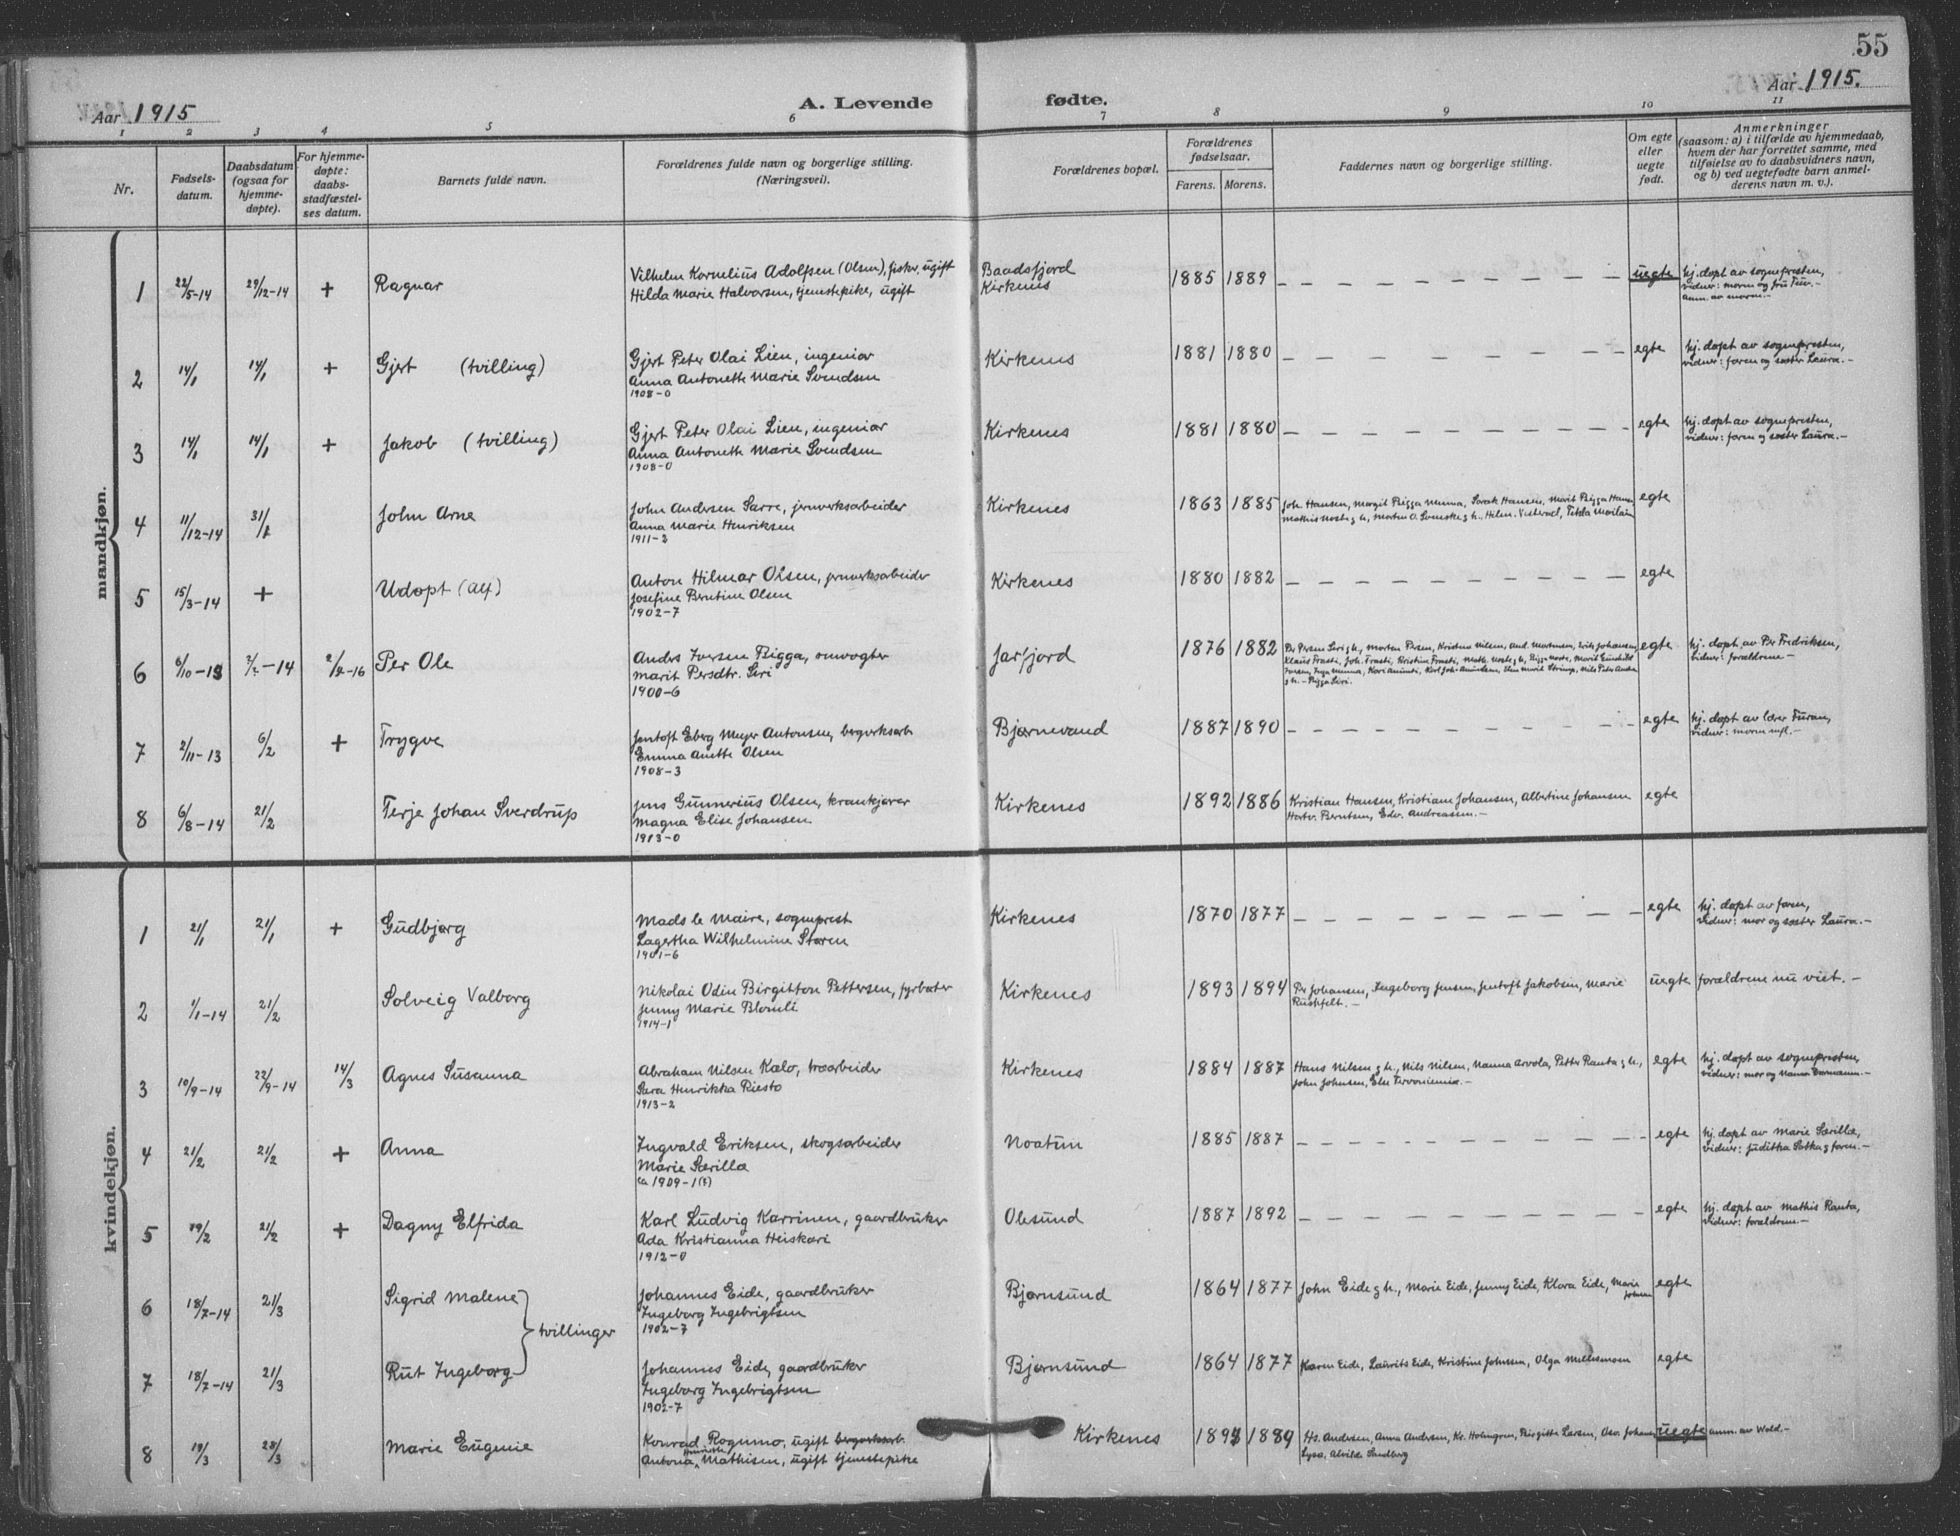 55
Aar 1915
A. Levende fødte.
Aar 1915.
1 2 3 4 5 6 7 8 9 10 11
Nr.
Fødsels-
datum.
Daabsdatum
(ogsaa for
hjemme-
døpte).
For hjemme-
døpte:
daabs-
stadfæstel-
ses datum.
Barnets fulde navn.
Forældrenes fulde navn og borgerlige stilling.
(Næringsvei).
Forældrenes bopæl.
Forældrenes
fødselsaar.
Farens. Morens.
Faddernes navn og borgerlige stilling.
Om egte
eller
uegte
født.
Anmerkninger
(saasom: a) i tilfælde av hjemmedaab,
hvem der har forrettet samme, med
tilføielse av to daabsvidners navn,
og b) ved uegtefødte barn anmel-
derens navn m. v.).
mandkjøn.
1 22/5-14 29/12-14 + Ragnar
Vilhelm Kornelius Adolfsen (Olsen), fisker, ugift
Hilda Marie Halvorsen, tjenestepike, ugift
Baadsfjord
Kirkenes
1885 1889 uegte
hj. døpt av sognepresten,
vidner: moren og fru
anm. av moren.-
2 14/1 14/1 + Gjert (tvilling)
Gjert Peter Olai Lien, ingeniør
Anna Antonette Marie Svendsen
1908-0
Kirkenes 1881 1880 egte
hj. døpt av sognepresten,
vidner: faren og søster Laura.-
3 14/1 14/1 + Jakob (tvilling)
Gjert Peter Olai Lien, ingeniør
Anna Antonette Marie Svendsen
1908-0
Kirkenes 1881 1880 egte
hj. døpt av sognepresten,
vidner: faren og søster Laura.-
4 11/12-14 31/1 John Arne
John Andersen Sarre, jernverksarbeider
Anna Marie Henriksen
1911-2
Kirkenes 1863 1885
Joh. Hansen, Margit Bigga Menna, Sarak Hansen, Marit Bigga Hansen
egte
5 15/3-14 + Udøpt (Alf)
Anton Hilmar Olsen, jernverksarbeider
Josefine Berntine Olsen
1902-7
Kirkenes 1880 1882 egte
6 6/10-13 2/2-14 2/2-16 Per Ole
Anders Iversen Bigga, omvogter
Marit Persdtr. Siri
1900-6
Jarfjord 1876 1882
Per Persen Siri g h., Morten Persen, Kristine Nilsen, And. Mortensen, Erik Johansen,
Klaus Frasti, Joh. Frasti, Kristine Frasti,
egte
hj. døpt av Per Fredriksen,
vidner: forældrene-
7 2/11-13 6/2 + Trygve
Jentoft Eberg Meyer Antonsen, bergverksarb
Emma Anette Olsen
1908-3
Bjørnevand 1887 1890 egte
hj. døpt av lærer Furan,
vidner: moren mfl.-
8 6/8-14 21/2 Terje Johan Sverdrup
Jens Gunnerius Olsen, krankjører
Magna Elise Johansen
1913-0
Kirkenes 1892 1886
Kristian Hansen, Kristiane Johansen, Albertine Johansen
Hartv. Berntsen, Edv. Andreassen.-
egte
kvindekjøn.
1 21/1 21/1 + Gudbjørg
Mads le Maire, sogneprest
Lagertha Wilhelmine Støren
1901-6
Kirkenes 1870 1877 egte
hj. døpt av faren,
vidner: mor og søster Laura.-
2 1/1-14 21/2 Solveig Valborg
Nikolai Odin Birgitton Pettersen, fyrbøter
Jenny Marie Blomli
1914-1
Kirkenes 1893 1894
Per Johansen, Ingeborg Jensen, Jentoft Jakobsen, Marie
Rushfelt.-
uegte forældrene nu viet.-
3 10/9-14 22/9-14 14/3 Agnes Susanna
Abraham Nilsen Kalo, træarbeider
Sara Henrikka Riesto
1913-2
Kirkenes 1884 1887
Hans Nilsen g h., Nils Nilsen, Nanna Arvola, Petter Ranta g h.,
John Johnsen, Else Tervoniemi.-
egte
hj. døpt av sognepresten,
vidner: mor og Nanna
4 21/2 21/2 + Anna
Ingvald Eriksen, skogsarbeider
Marie Særilla
ca 1909-1(?)
Noatun 1885 1887 egte
hj. døpt av Marie Særilla,
vidner: Juditha Sotka g faren.-
5 19/2 21/2 + Dagny Elfrida
Karl Ludvig Karrinen, gaardbruker
Ada Kristianna Heiskari
1912-0
Olesund 1887 1892 egte
hj. døpt av Mathis Ranta,
vidner: forældrene.-
6 18/7-14 21/3 Sigrid Malene
tvillinger
Johannes Eide, gaardbruker
Ingeborg Ingebrigtsen
1902-7
Bjørnsund 1864 1877
John Eide g h., Marie Eide, Jenny Eide, Klara Eide, Marie
Johnsen
egte
7 18/7-14 21/3 Rut Ingeborg
Johannes Eide, gaardbruker
Ingeborg Ingebrigtsen
1902-7
Bjørnsund 1864 1877
Karen Eide, Laurits Eide, Kristine Johnsen, Olga
egte
8 19/3 28/3 Marie Eugenie
Konrad Rognmo, ugift bergverksarb.
Antona Henriette Mathisen, ugift tjenestepike
Kirkenes 1889
Hs. Andersen, Anna Andersen, Kr. Holmgren, Birgitte Larsen, Osv. Johansen
Lyså, Alvilde Sandberg
uegte anm. av Wold.-